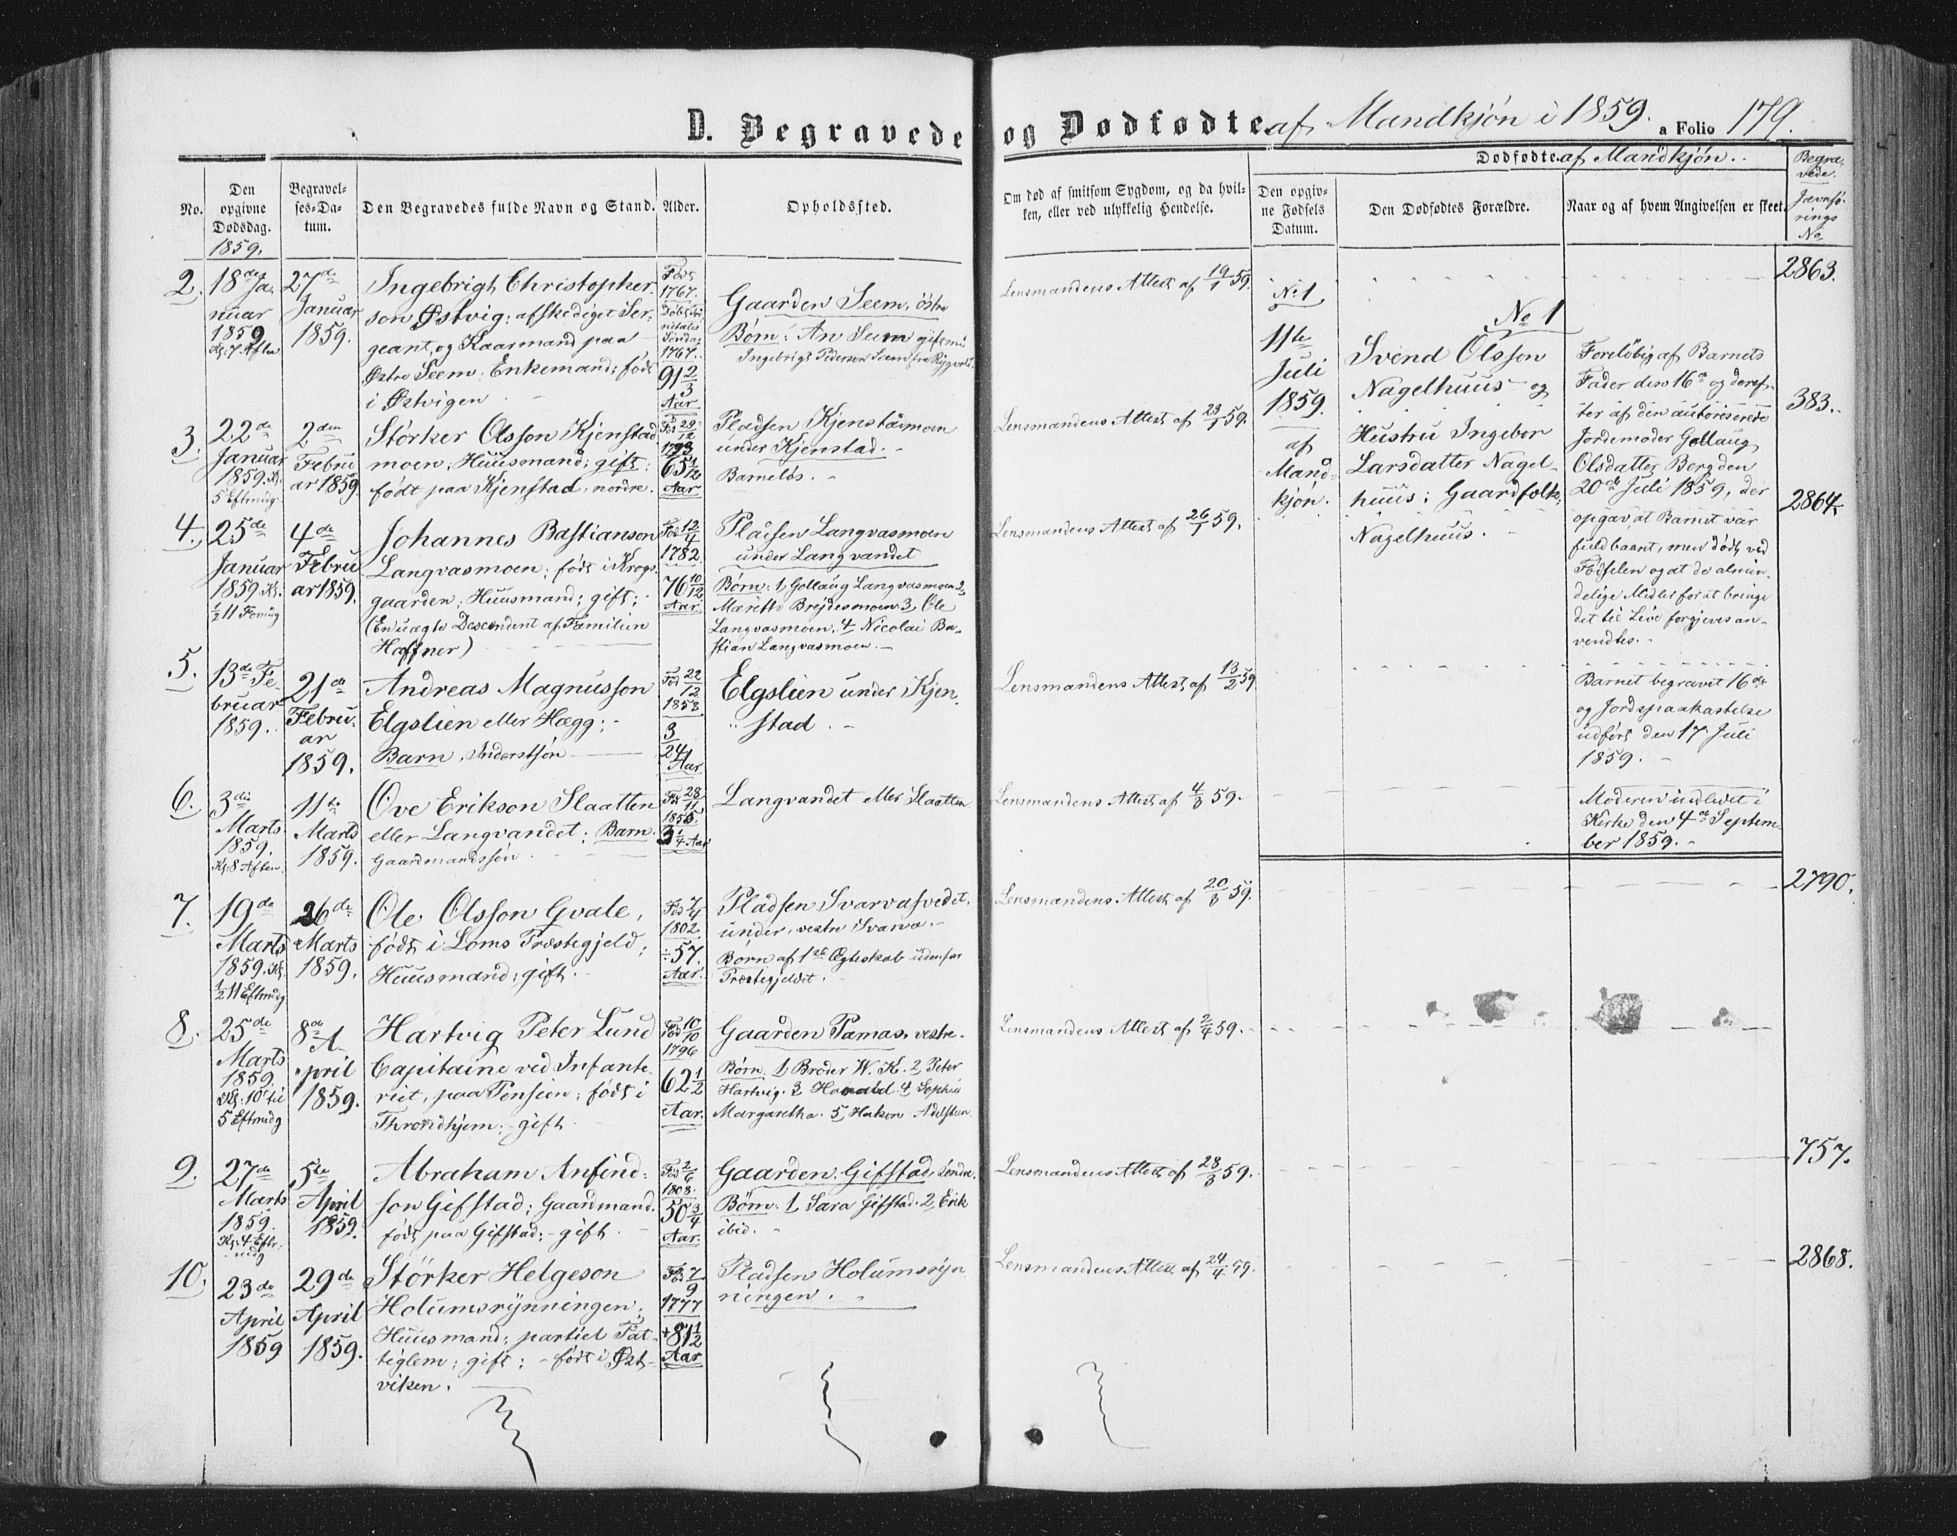 D. Begravede og Dødfødte af Mandkjøn i 1859. a Folio 179.
No.
Den opgivne Dødsdag. 1859.
Begravelses-Datum.
Den Begravedes fulde Navn og Stand.
Alder.
Opholdssted.
Om død af smitsom Sygdom, og da hvilken, eller ved ulykkelig Hendelse.
Dødfødte af Mandkjøn.
Den opgivne Fødsels Datum.
Den Dødfødtes Forældre.
Naar og af hvem Angivelsen er skeet.
Begravede. Jævnførings No
2.
18de Januar 1859 Kl. 7 Aften
27de Januar 1859.
Ingebrigt Christopher
son Østvig; afskediget Ser
geant, og Kaarmand paa
Østre Seem; Enkemand; født
i Østvigen
Født 1767. Søndag 1767.
91 2/3 Aar
Gaarden Seem, østre
Børn: An Seem gift m:
Ingebrigt Pederson Seem fra
Lensmandens Attest af 19/1 59.
2863.
3.
22de Januar 1859. Kl. 5 Eftmdg.
2den Februar 1859.
Størker Olsson Kjenstad
moen; Huusmand; gift;
født paa Kjenstad, nordre.
Fød 29/12 1793
65 1/12 Aar
Pladsen Kjenstadmoen
under Kjenstad.
Barnløs.
Lensmandens Attest af 23/1 59.
383.
4.
25de Januar 1859 Kl. 1/2 11 Formdg
4de Februar 1859.
Johannes Bastianson
Langvasmoen; født i Krogs
gaarden; Huusmand; gift;
(En uægte Descendent af Familien
Haffner)
Fød 12/4 1782
76 10/12 Aar
Pladsen Langvasmoen
under Langvandet
Børn: 1, Gollaug Langvasmoen 2,
Marette Brejdesmoen 3, Ole
Langvasmoen, 4 Nicolai Ba-
stian Langvasmoen.
Lensmandens Attest af 26/1 59.
2864.
5.
13de Februar 1859.
21de Februar 1859.
Andreas Magnusson
Elgslien eller Hægg;
Barn, Inderstsøn
Fød 22/12 1858
3/24 Aar
Elgslien under Kjen
stad.
Lensmandens Attest af 13/2 59
6.
3die Marts 1859. Kl. 8 Aften.
11te Marts 1859.
Ove Erikson Slaatten
eller Langvandet; Barn.
Gaardmandssøn
Fød 28/11 1855.
3 1/4 Aar
Langvandet eller Slaatten
Lensmandens Attest af 4/3 59.
7.
19de Marts 1859. Kl. 1/2 11 Eftmdg
26de Marts 1859.
Ole Olsson Gvale,
født i Loms Præstegjeld;
Huusmand; gift.
Fød 7/4 1802.
57. Aar.
Pladsen Svarvasvedet.
under, vestre Svarva.
Børn af 1ste Ægteskab udenfor
Præstegjeldet.
Lensmandens Attest af 20/3 59.
2790.
8.
25de Marts 1859. Kl. 10 til 5 Eftmidg
8de April 1859.
Hartvig Peter Lund
Capitaine ved Infante
riet, paa Pension; født i
Throndhjem; gift
Fød 10/10 1796
62 1/2 Aar.
Gaarden Tamas, vestre.
Børn. 1, Broder W. K. 2, Peter
Hartvig. 3 Harald. 4, Sophie
Margaretha. 5, Haken Adelsten
Lensmandens Attest af 2/4 59.
9.
27de Marts 1859. Kl. 4 Eftrmdg
5te April 1859.
Abraham Anfind-
son Gifstad; Gaardmand.
født paa Gifstad; gift
Fød 2/6 1808.
50 3/4 Aar.
Gaarden Gifstad, søndre.
Børn. 1, Sara Gifstad. 2, Erik
ibid.
Lensmandens Attest af 28/3 59.
757.
10.
23de April 1859
29de April 1859.
Størker Helgeson
Holumsrynningen,
Huusmand; partiel Fat-
tiglem; gift; født i Øst-
viken.
Fød 7/9 1777
81 1/2 Aar
Pladsen Holumsryn
ningen.
Lensmandens Attest af 24/4 59.
2868.
No 1
11te Juli 1859. af Mandkjøn.
No 1
Svend Olsson
Nagelhuus og
Hustru Ingebor
Larsdatter Nagel-
huus; Gaardfolk,
Nagelhuus.
Foreløbig af Barnets
Fader den 16de og deref-
ter af den autoriserede
Jordemoder Gollaug
Olsdatter Berg den
20de Juli 1859, der
opgav, at Barnet var
fuldbaart, men døde ved
Fødselen og at de almin-
delige Midler for at bringe
det til Live forgjeves an-
vendtes.
Barnet begravet 16de
og Jordspaakastelse
udført den 17 Juli
1859.
Moderen indledet i
Kirke den 4de Septem-
ber 1859.